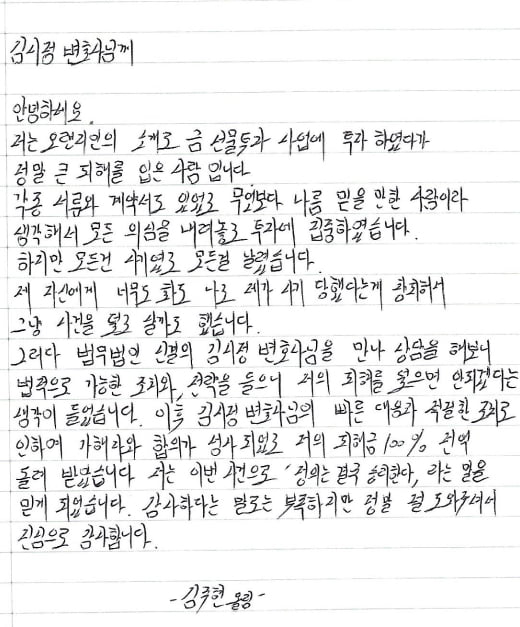 김시정 변호사님께
안녕하세요.
저는 오랜지인의 소개로 금 선물투자 사업에 투자 하였다가
정말 큰 피해를 입은 사람 입니다
각종 서류와 계약서도 있었고 무엇보다 나름 믿을 만한 사람이라
생각해서 모든 의심을 내려놓고 투자에 집중하였습니다.
하지만 모든건 사기였고 모든걸 날렸습니다.
제 자신에게 너무도 화도 나고 제가 사기 당했다는게 창피해서
그냥 사건을 덮고 살까도 했습니다.
그러다 법무법인 신결의 김시정 변호사님을 만나 상담을 해보니
법적으로 가능한 조치와, 전략을 들으니 저의 피해를 덮으면 안되겠다는
생각이 들었습니다. 이후 김시정 변호사님의 빠른 대응과 적절한 조치로
인하여 가해자와 합의가 성사되었고 저의 피해금 100% 전액
돌려 받았습니다 저는 이번 사건으로 '정의는 결국 승리한다, 라는 말을
믿게 되었습니다. 감사하다는 말로는 부족하지만 정말 절 도와주셔서
진심으로 감사합니다.
- 김주현 올림 -